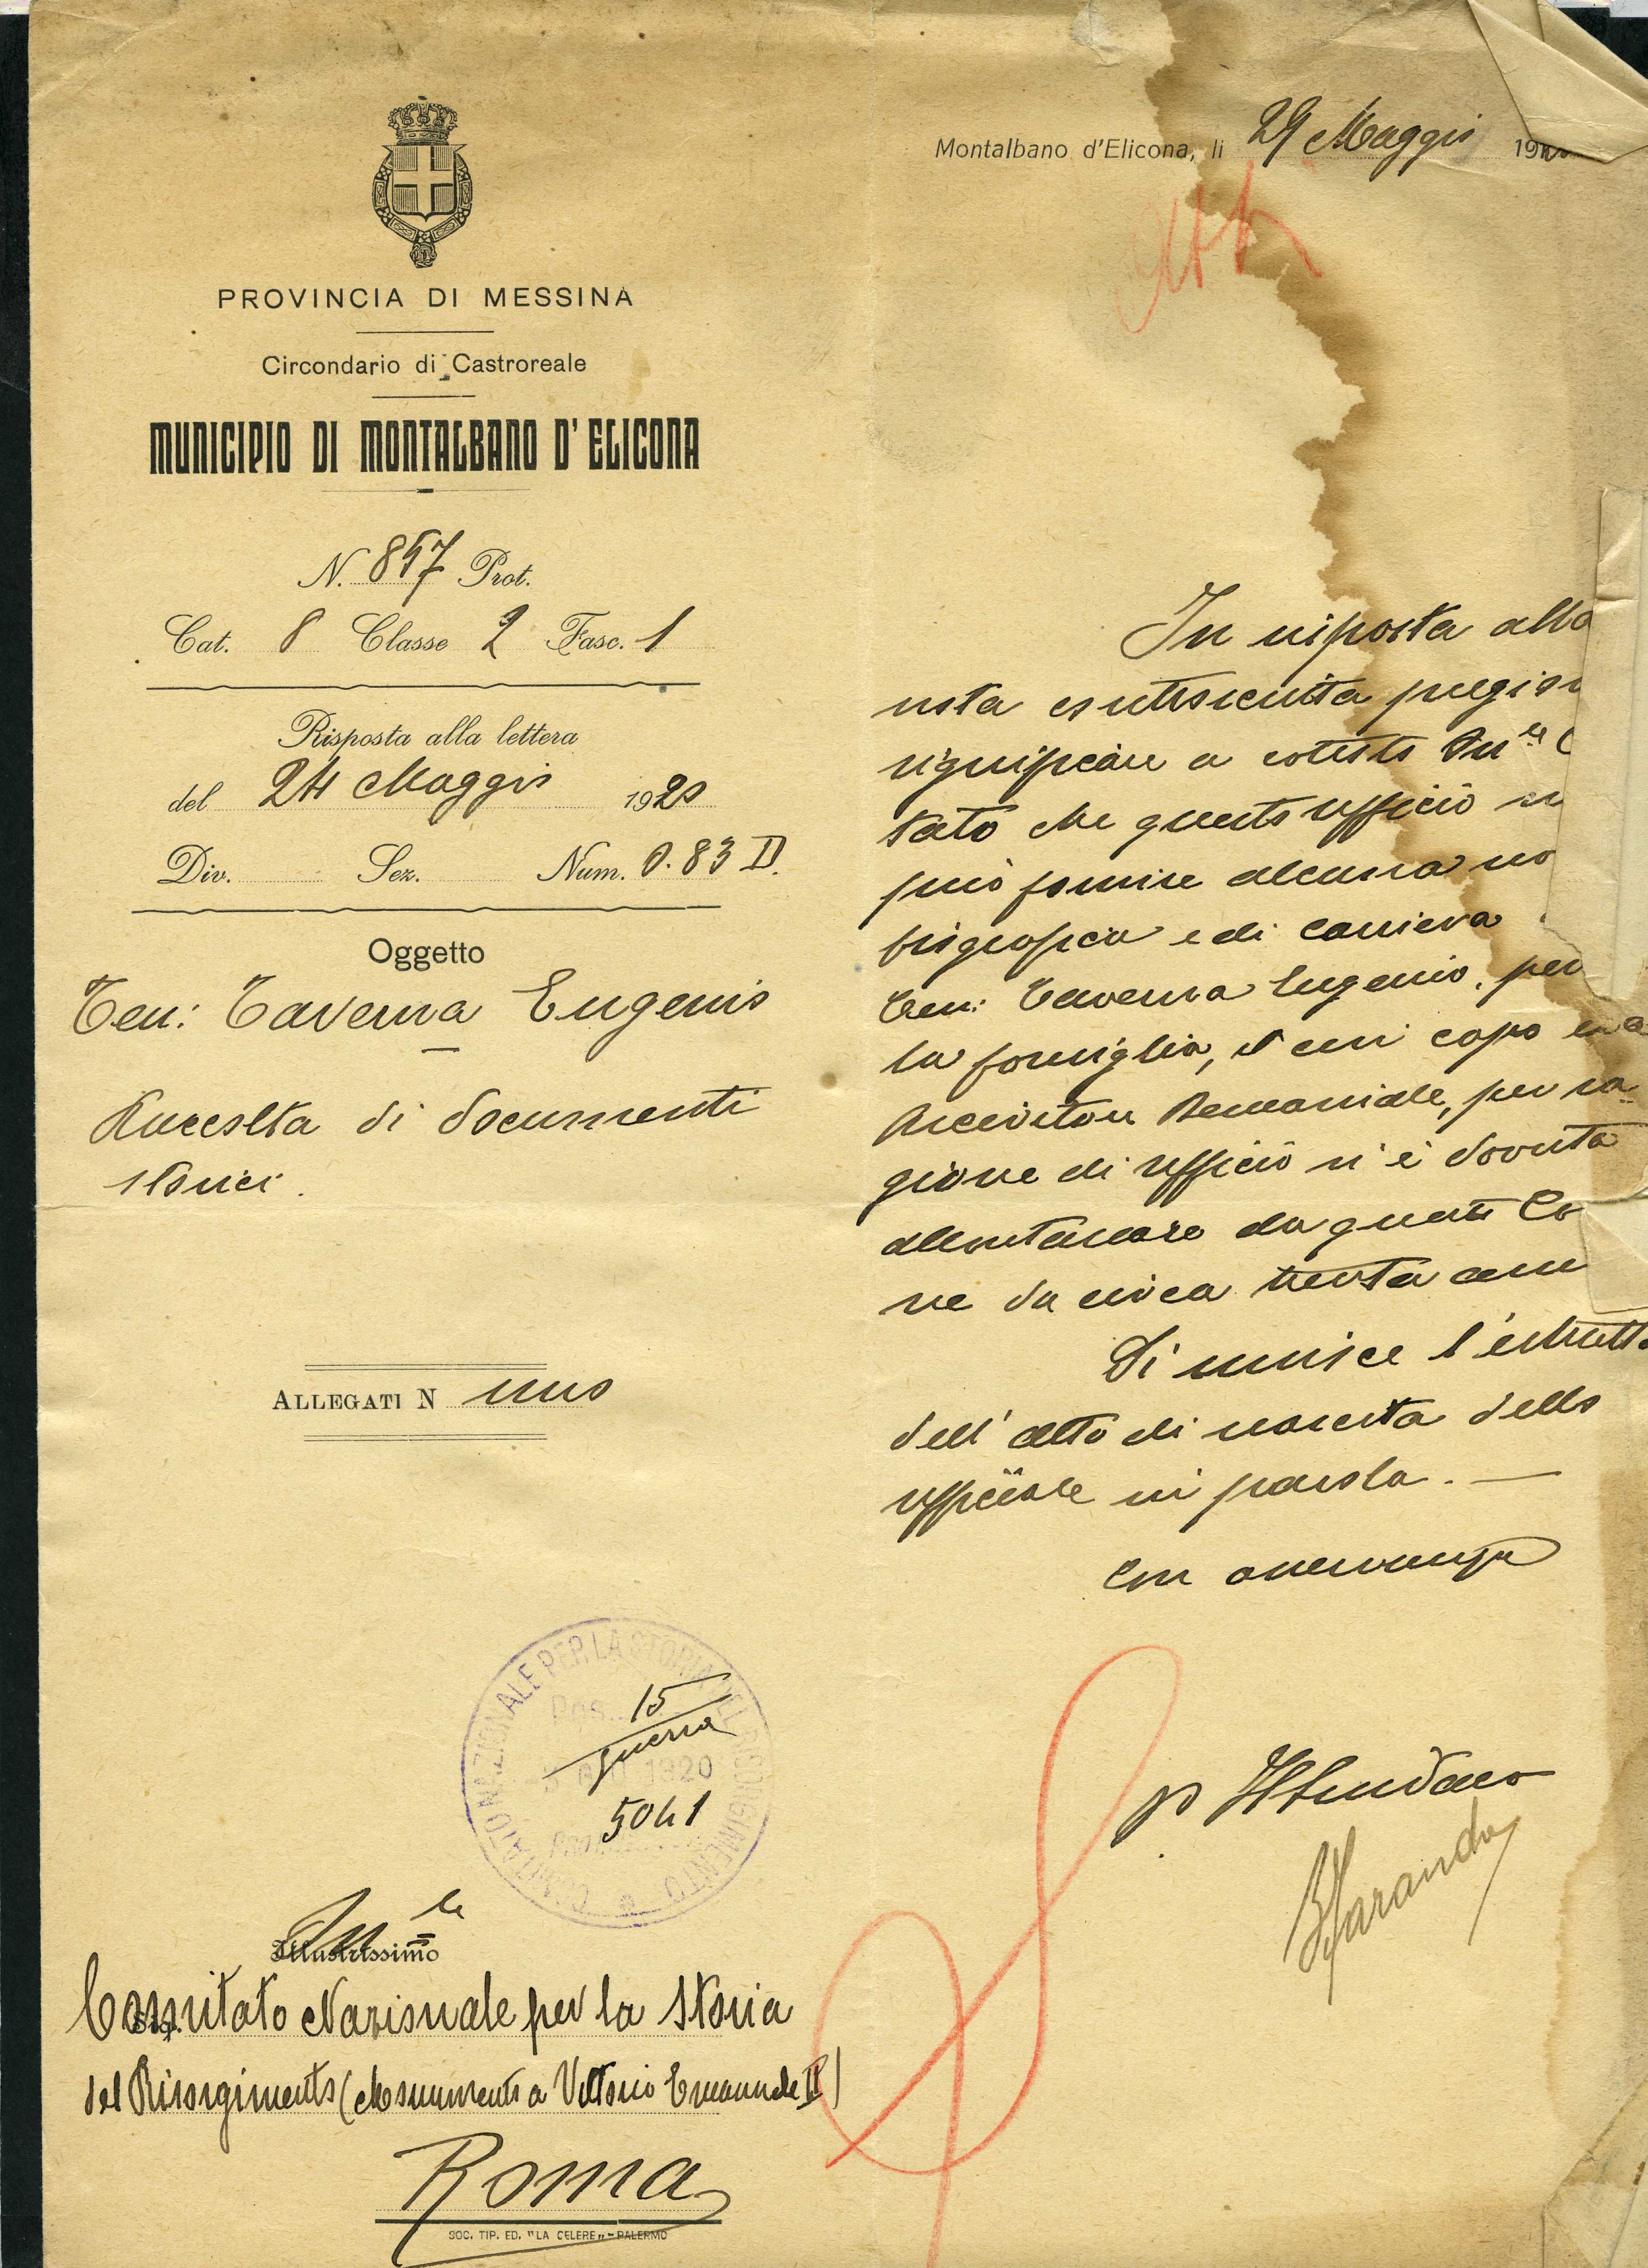 PROVINCIA DI MESSINA
Circondario di Castroreale
MUNICIPIO DI MONTALBANO D'ELICONA
N. 857 Prot.
Cat. 8 Classe 2 Fasc. 1
Risposta alla lettera
del 24 Maggio 1920
Div. Sez. Num. 0.83 II.
Oggetto
Ten: Taverna Eugenio
Raccolta di documenti
storici.
ALLEGATI N uno
COMITATO NAZIONALE PER LA STORIA DEL RISORGIMENTO
Pos. 15
guerra
1920
5041
Ill le
Illustrissimo
Sig.
Comitato Nazionale per la Storia
del Risorgimento (Monumento a Vittorio Emanuele II)
Roma
SOC. TIP. ED. "LA CELERE„ - PALERMO
Montalbano d'Elicona, li 29 Maggio 19
In risposta alla
nota controscritta pregio
significare a cotesto On le C
tato che questo ufficio
può fornire alcuna no
biografica e di carriera
Ten: Taverna Eugenio, per
la famiglia, il cui capo era
Ricevitore Demaniale, per ra-
gione di ufficio si è dovuta
allontanare da questo Co
ne da circa trenta ann
Si unisce l'estratto
dell'atto di nascita dello
ufficiale in parola. —
Con osservanza
p Il Sindaco